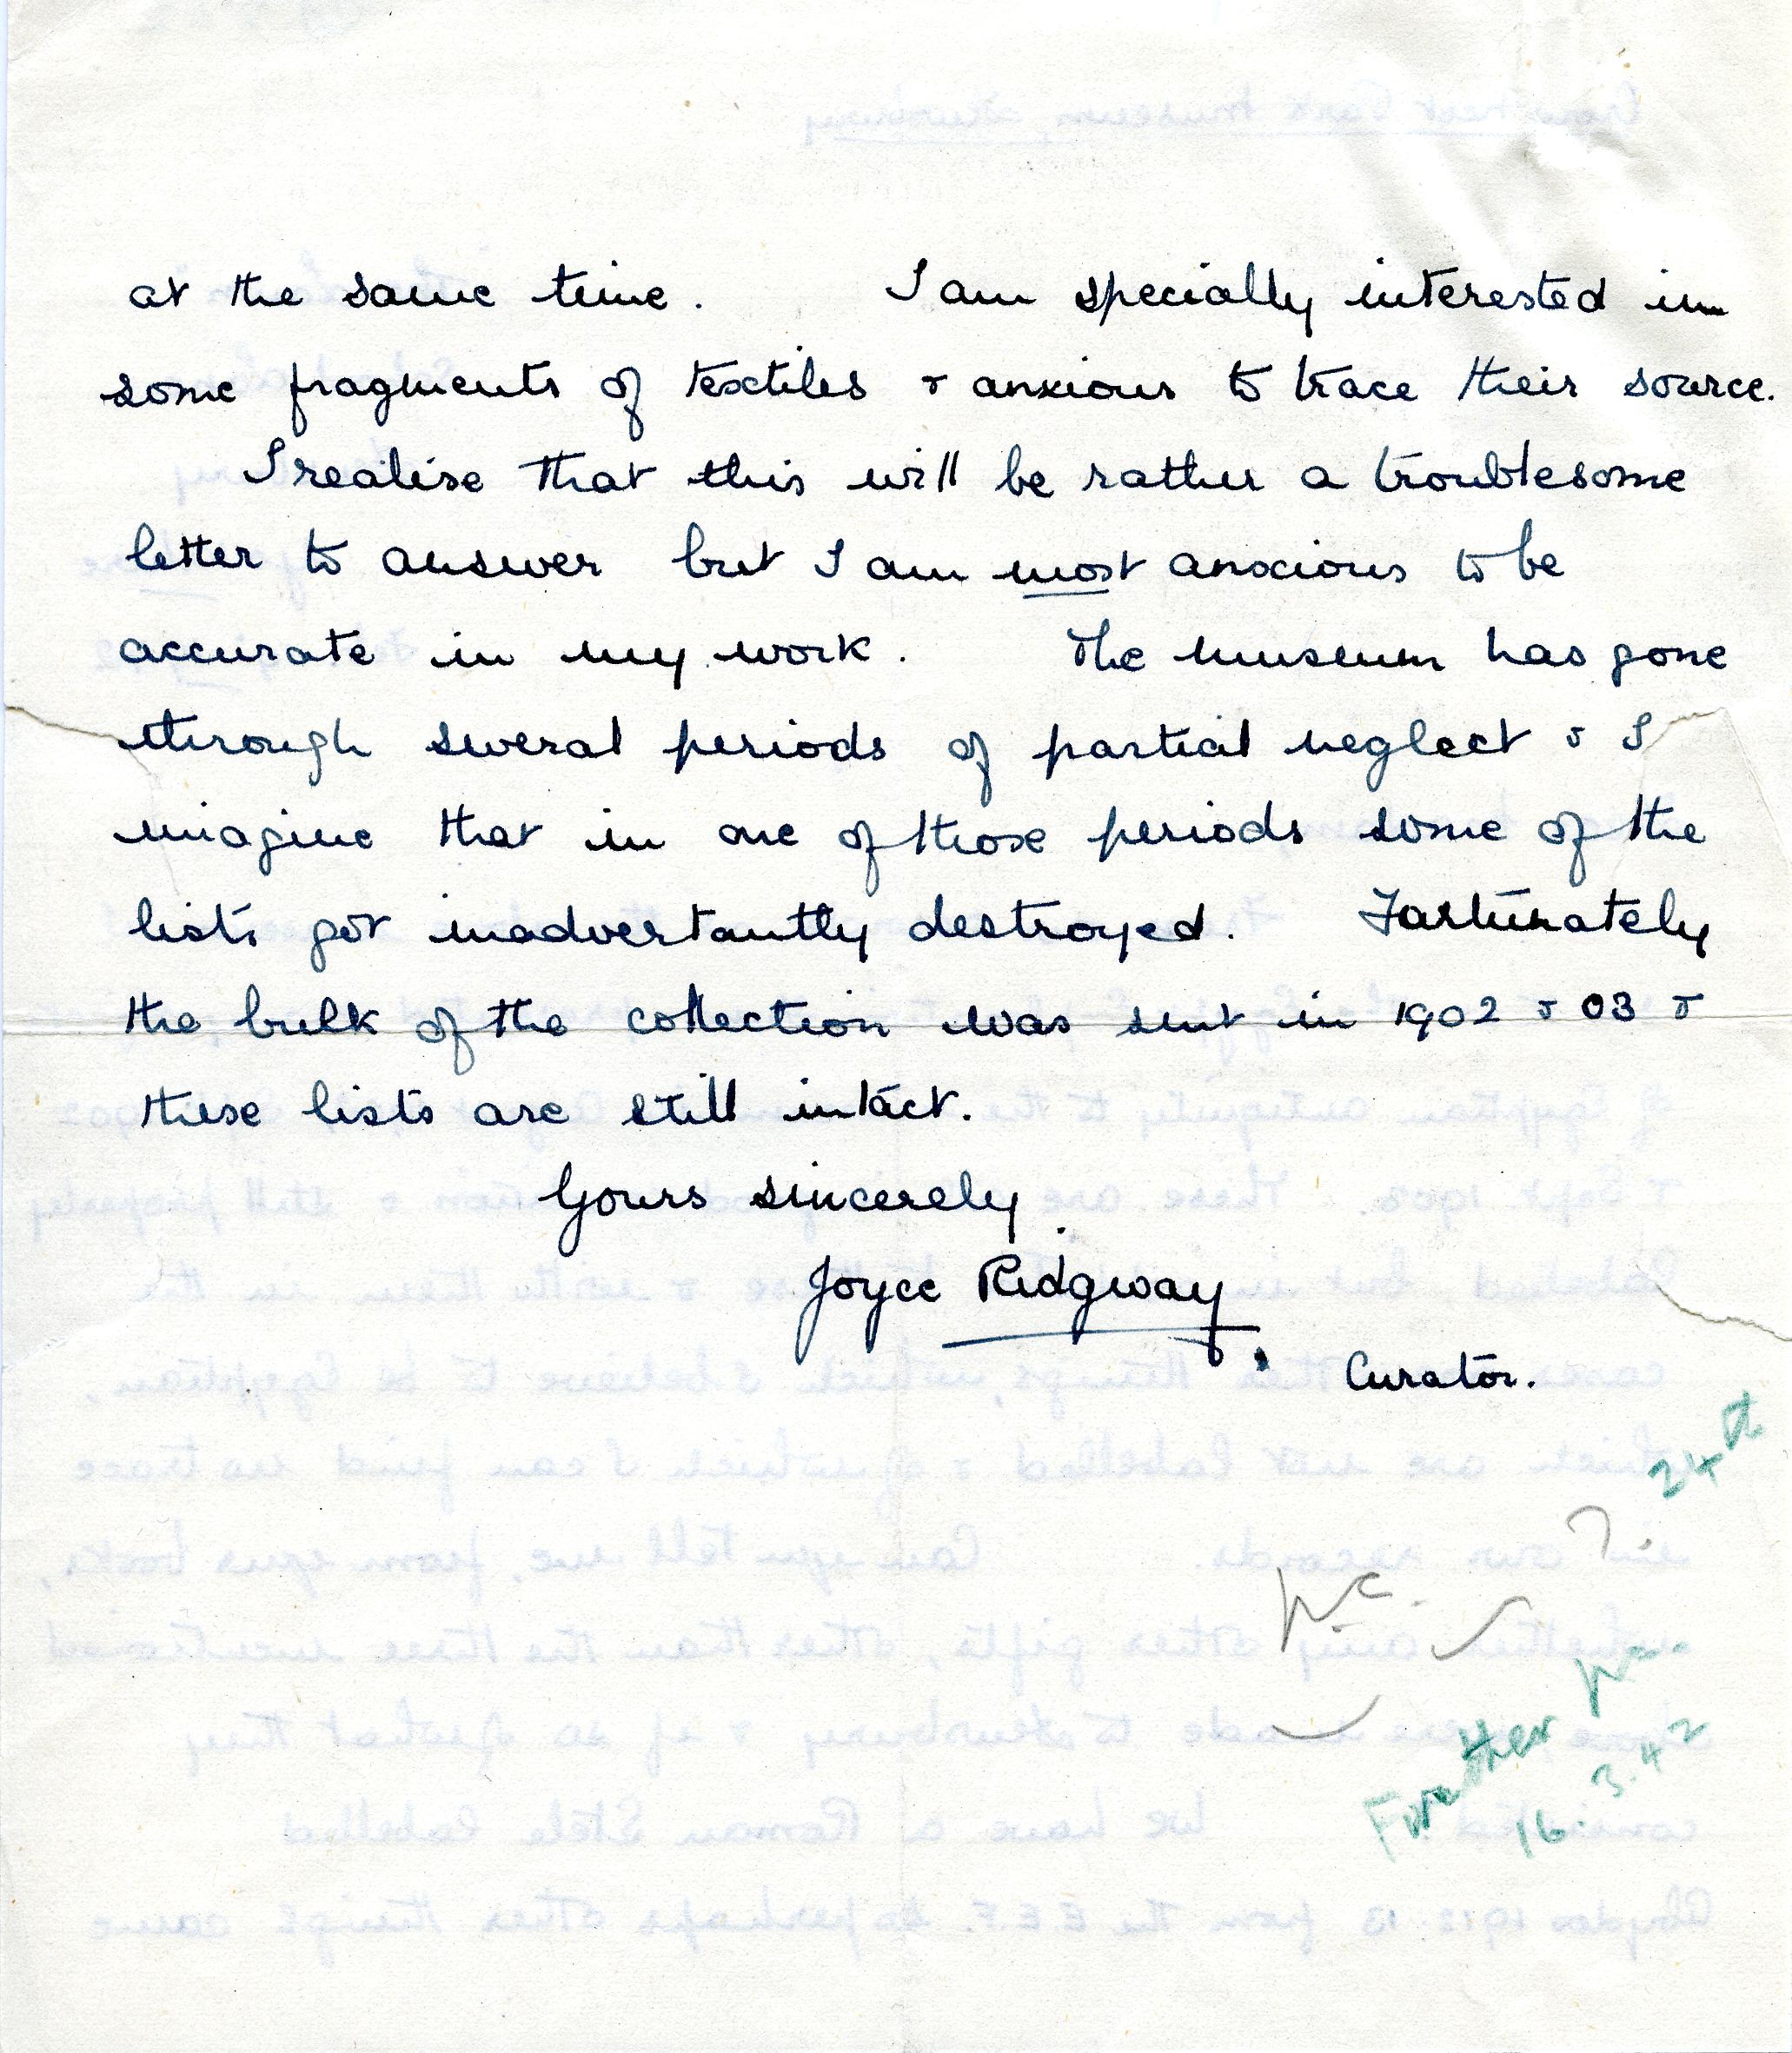 at the same time. I am specially interested in
some fragments of textiles & anxious to trace their source.
I realise that this will be rather a troublesome
letter to answer but I am most anxious to be
accurate in my work. The museum has gone
through several periods of partial neglect & I
imagine that in one of those periods some of the
lists got inadvertantly destroyed. Fortunately
the bulk of the collection was sent in 1902 & 03 &
these lists are still intact.
Yours sincerely
Joyce Ridgway.
Curator.
24th
Further
16.3.42